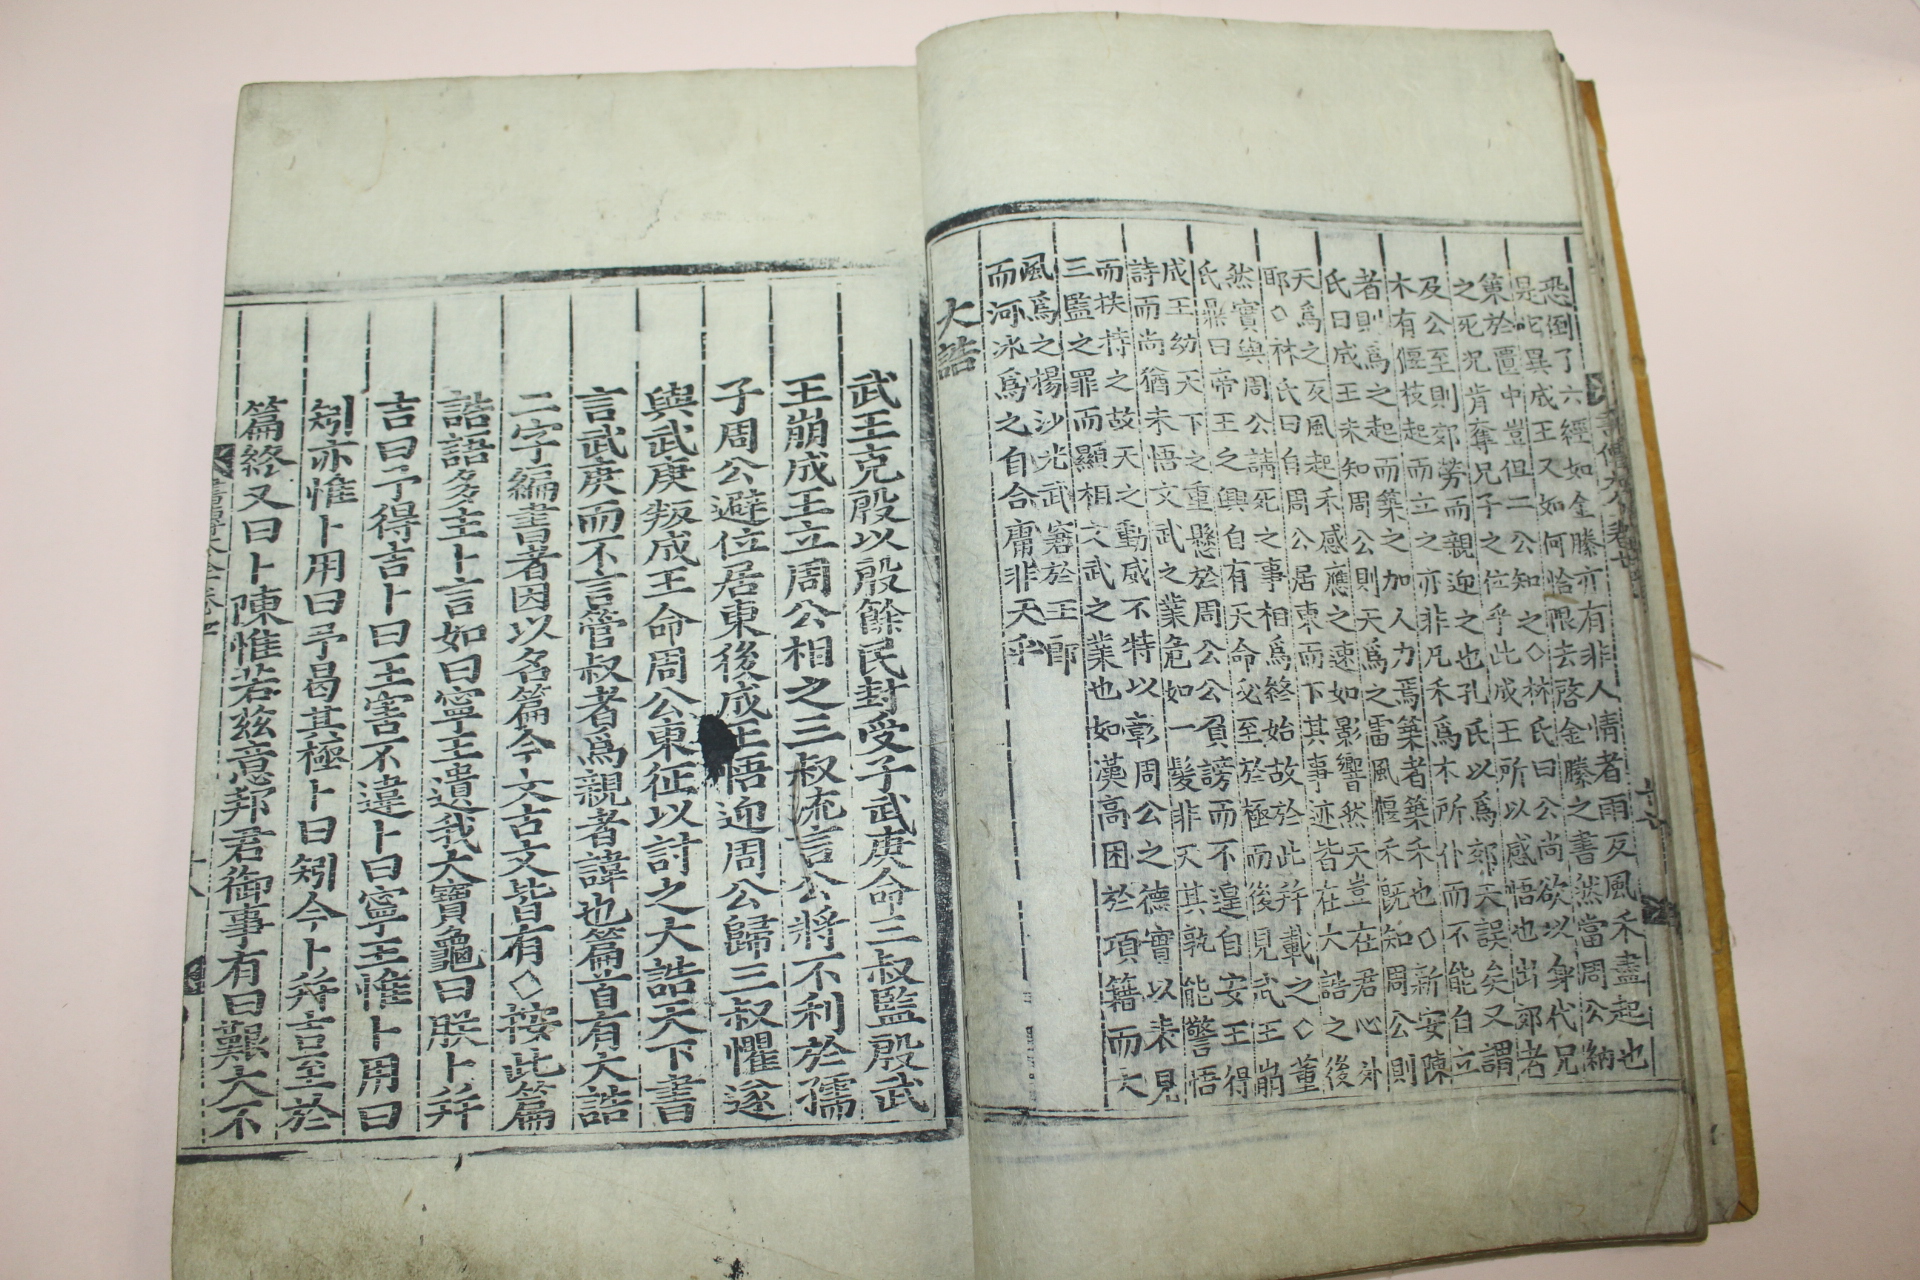 恐倒了六經如金縢亦有非人情者雨反風禾盡起也
是咤異成王又如何恰限去啓金縢之書然當周公納
策於匱中豈但二公知之◇林氏曰公尚欲以身代兄
之死況肯奪兄子之位乎此成王所以感悟也出郊者
及公至則郊勞而親迎之也孔氏以爲郊天誤矣又謂
木有偃枝起而立之亦非凡禾爲木所仆而不能自立
者則爲之起而築之加人力焉築者築禾也◇新安陳
氏曰成王未知周公則天爲之雷風偃禾旣知周公則
天爲之反風起禾感應之速如影響然天豈在君心外
耶◇林氏曰自周公居東而下其事迹皆在大誥之後
然實與周公請死之事相爲終始故於此幷載之◇董
氏鼎曰帝王之興自有天命必至於極而後見武王崩
成王幼天下之重懸於周公公負謗而不遑自安王得
詩而尚猶未悟文武之業危如一髮非天其孰能警悟
而扶持之故天之動威不特以彰周公之德實以未見
三監之罪而顯相文武之業也如漢高困於項籍而大
風爲之揚沙光武窘於王郎
而河冰爲之自合庸非天乎
大誥
武王克殷以殷餘民封受子武庚命三叔監殷武
王崩成王立周公相之三叔流言公將不利於孺
子周公避位居東後成王悟迎周公歸三叔懼遂
與武庚叛成王命周公東征以討之大誥天下書
言武庚而不言管叔者爲親者諱也篇首有大誥
二字編書者因以名篇今文古文皆有◇按此篇
誥語多主卜言如曰寧王遺我大寶龜曰朕卜幷
吉曰予得吉卜曰王害不違卜曰寧王惟卜用曰
矧亦惟卜用曰予曷其極卜曰矧今卜幷吉至於
篇終又曰卜陳惟若玆意邦君御事有曰艱大不
書傳大全卷七 十八